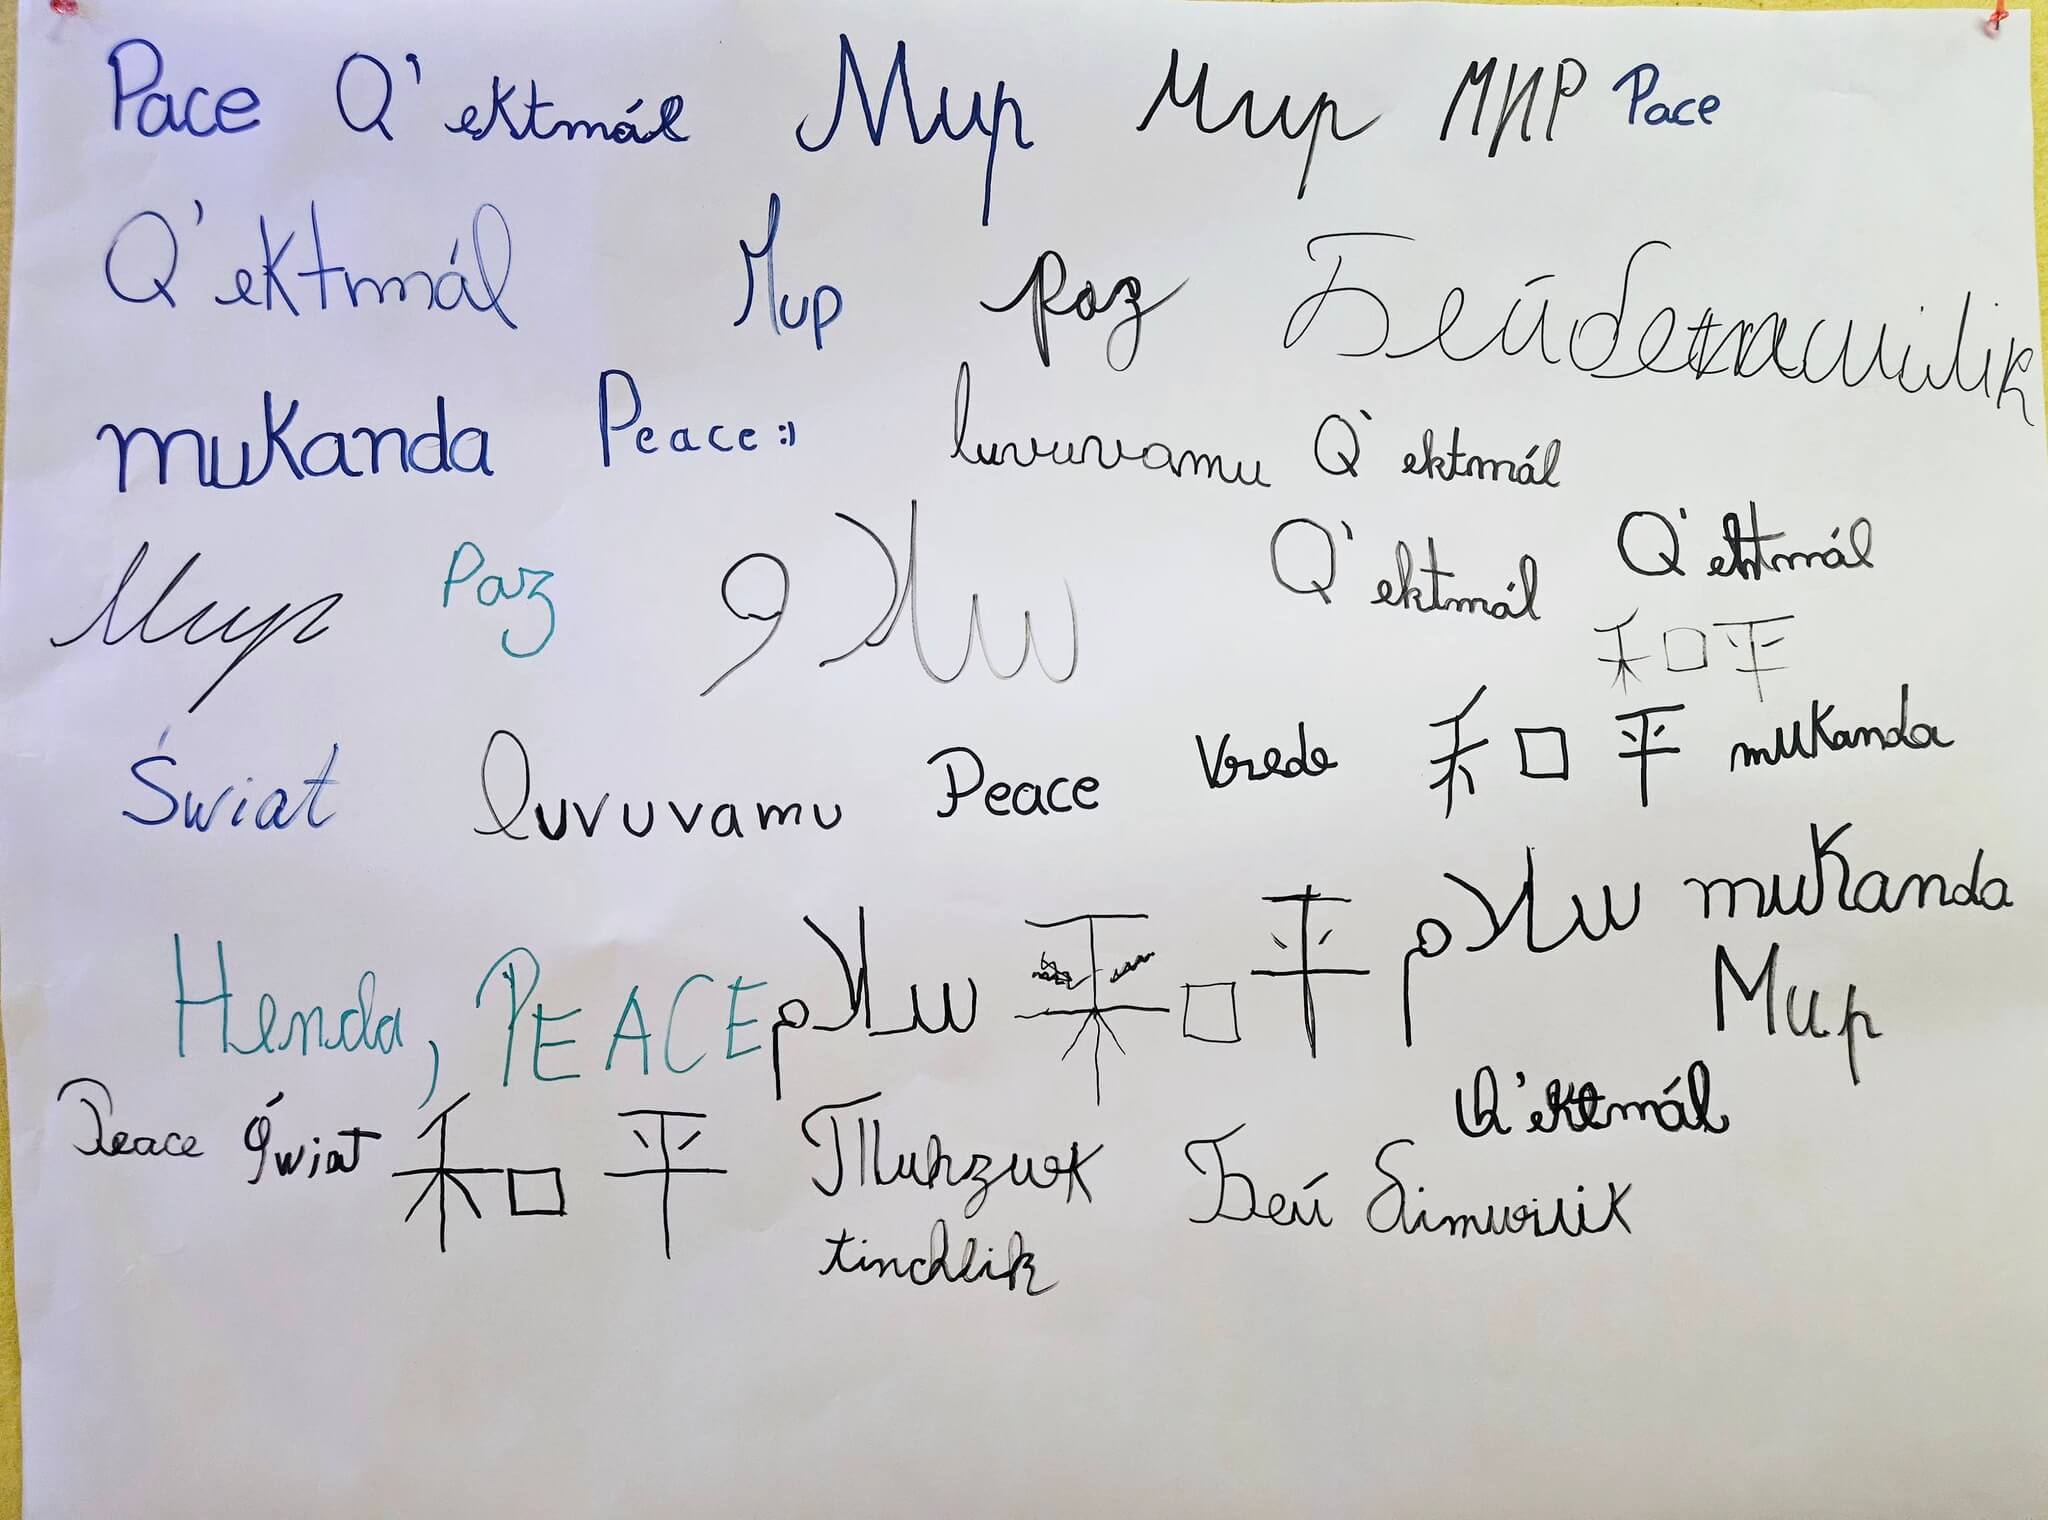 Pace Q'ektmál Мир Мир МИР Pace
Q'ektmál Мир paz
mukanda Peace :) luvuvamu Q'ektmál
Мир Paz سلام Q'ektmál Q'ektmál
和平
Świat luvuvamu Peace Vrede 和平 mukanda
Henda, PEACE سلام 和平 سلام mukanda
Мир
Peace Świat 和平 Q'ektmál
Бей
tinchlik